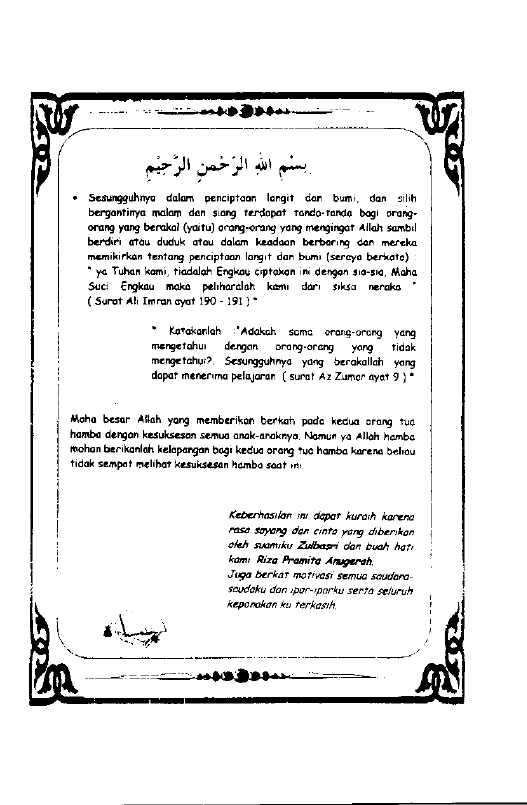 بسم الله الرحمن الرحيم
• Sesungguhnya dalam penciptaan langit dan bumi, dan silih
bergantinya malam dan siang terdapat tanda-tanda bagi orang-
orang yang berakal (yaitu) orang-orang yang mengingat Allah sambil
berdiri atau duduk atau dalam keadaan berbaring dan mereka
memikirkan tentang penciptaan langit dan bumi (seraya berkata) :
" ya Tuhan kami, tiadalah Engkau ciptakan ini dengan sia-sia, Maha
Suci Engkau maka peliharalah kami dari siksa neraka "
( Surat Ali Imran ayat 190 - 191 ) "
" Katakanlah :"Adakah sama orang-orang yang
mengetahui dengan orang-orang yang tidak
mengetahui?. Sesungguhnya yang berakallah yang
dapat menerima pelajaran ( surat Az Zumar ayat 9 ) "
Maha besar Allah yang memberikan berkah pada kedua orang tua
hamba dengan kesuksesan semua anak-anaknya. Namun ya Allah hamba
mohan berikanlah kelapangan bagi kedua orang tua hamba karena beliau
tidak sempat melihat kesuksesan hamba saat ini.
Keberhasilan ini dapat kuraih karena
rasa sayang dan cinta yang diberikan
oleh suamiku Zulbasri dan buah hati
kami Riza Pramita Anugerah.
Juga berkat motivasi semua saudara-
saudaku dan ipar-iparku serta seluruh
keponakan ku terkasih.